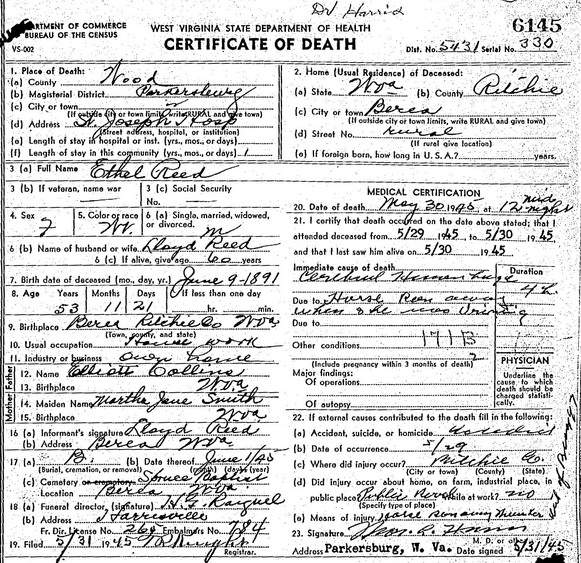 Dr. Harris
DEPARTMENT OF COMMERCE
BUREAU OF THE CENSUS
VS-002
WEST VIRGINIA STATE DEPARTMENT OF HEALTH
CERTIFICATE OF DEATH
6145
Dist. No. 5431 Serial No. 330
1. Place of Death:
(a) County Wood
(b) Magisterial District Parkersburg
(c) City or town
(If outside city or town limits, write RURAL and give town)
(d) Address St. Joseph Hosp
(Street address, hospital, or institution)
(e) Length of stay in hospital or inst. (yrs., mos., or days)
(f) Length of stay in this community (yrs., mos., or days) 1
2. Home (Usual Residence) of Deceased:
(a) State Wva (b) County Ritchie
(c) City or town Berea
(If outside city or town limits, write RURAL and give town)
(d) Street No. rural
(If rural give location)
(e) If foreign born, how long in U.S.A.? years.
3 (a) Full Name Ethel Reed
3 (b) If veteran, name war
3 (c) Social Security No.
4. Sex F
5. Color or race W.
6 (a) Single, married, widowed, or divorced. M
6 (b) Name of husband or wife Lloyd Reed
6 (c) If alive, give age 60 years
7. Birth date of deceased (mo., day, yr.) June 9-1891
8. Age Years Months Days If less than one day
53 11 21 hr. min.
9. Birthplace Berea Ritchie Co Wva
(Town, county, and state)
10. Usual occupation House work
11. Industry or business Own home
Father
12. Name Elliott Collins
13. Birthplace Wva
Mother
14. Maiden Name Martha Jane Smith
15. Birthplace Wva
16 (a) Informant's signature Lloyd Reed
(b) Address Berea Wva
17 (a) B. (b) Date thereof June 1/45
(Burial, cremation, or removal) (month) (day) (year)
(c) Cemetery or crematory
Location Berea Wva
18 (a) Funeral director, (signature)
(b) Address Harrisville
Fr. Dir. License No. 268 Embalmers No. 784
19. Filed 5/31 1945
Registrar.
MEDICAL CERTIFICATION
20. Date of death May 30 1945 at 12 mid night
21. I certify that death occurred on the date above stated; that I
attended deceased from 5/29 1945 to 5/30 1945
and that I last saw him alive on 5/30 1945
Immediate cause of death Duration
Cerebral Hemorrhage
Due to Horse Ran away
when she was driving
Due to
Other conditions 171B
(Include pregnancy within 3 months of death)
Major findings:
Of operations
Of autopsy
PHYSICIAN
Underline the cause to which death should be charged statistically.
22. If external causes contributed to the death fill in the following:
(a) Accident, suicide, or homicide Accident
(b) Date of occurrence 5/29
(c) Where did injury occur? Ritchie Co.
(City or town) (County) (State)
(d) Did injury occur about home, on farm, industrial place, in
public place? Public Road While at work? no
(Specify type of place)
(e) Means of injury Horse runaway
23. Signature
M. D. or other
Address Parkersburg, W. Va. Date signed 5/31/45